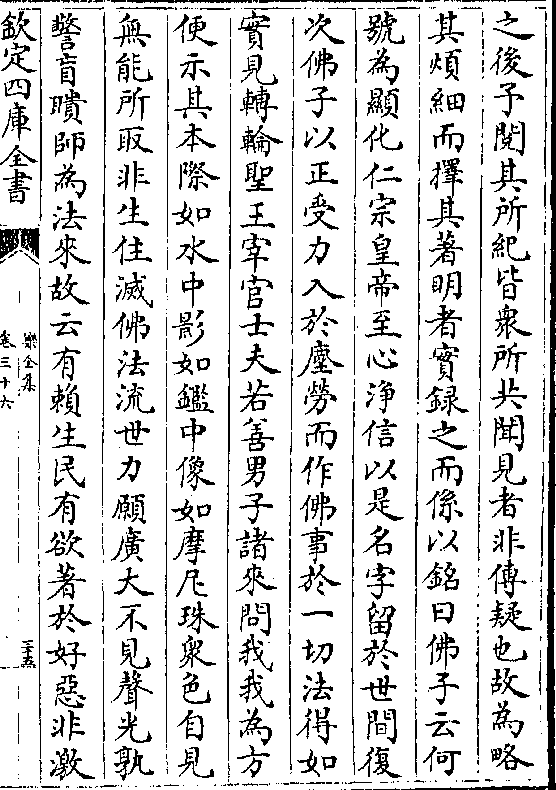 之後予閲其所紀皆衆所共聞見者非傳疑也故為略
其煩細而擇其著明者實録之而係以銘曰佛子云何
號為顯化仁宗皇帝至心浄信以是名字留於世間復
次佛子以正受力入於塵勞而作佛事於一切法得如
實見轉輪聖王宰官士夫若善男子諸來問我我為方
便示其本際如水中影如鑑中像如摩尼珠衆色自見
無能所取非生住滅佛法流世力願廣大不見聲光孰
警盲聵師為法來故云有賴生民有欲著於好惡非激
欽定四庫全書
樂全集
卷三十六
二十五